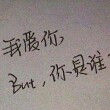 我爱你，
But，你是谁